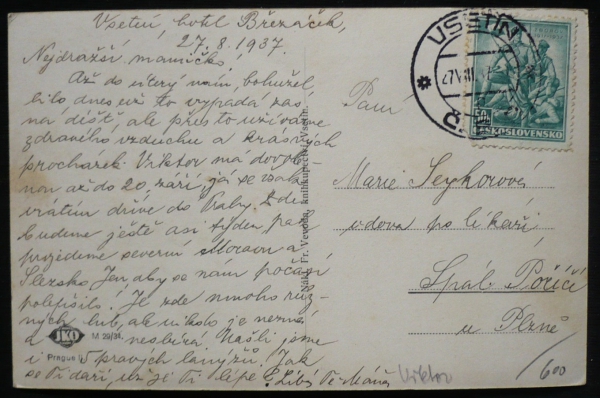 Vsetín, hotel Březáček,
27.8.1937.
Nejdražší maminko!
Až do včerejška nám, bohužel,
dnes už to vypadá zas
na déšť, ale přes to užíváme
zdravého vzduchu a krásných
procházek. Viktor má dovole-
nou až do 20. září, já se však
vrátím dříve do Prahy. Zde
budeme ještě asi týden, pak
projedeme severní Moravu a
Slezsko. Jen aby se nám počasí
polepšilo! Je zde mnoho růz-
ných hub, ale nikdo je nezná
a nesbírá. Našli jsme
i pravých lanýžů. Jak
se Ti daří, už je Ti lépe? Líbá Tě Máňa
Viktor
Nákl. Fr. Vevoda, knihkupectví, Vsetín.
IKO
M 29/34
Prague
VSETÍN
27 VIII
ČESKOSLOVENSKO
Paní
Marie Seykorová
vdova po lékaři
Spál. Poříčí
u Plzně
600